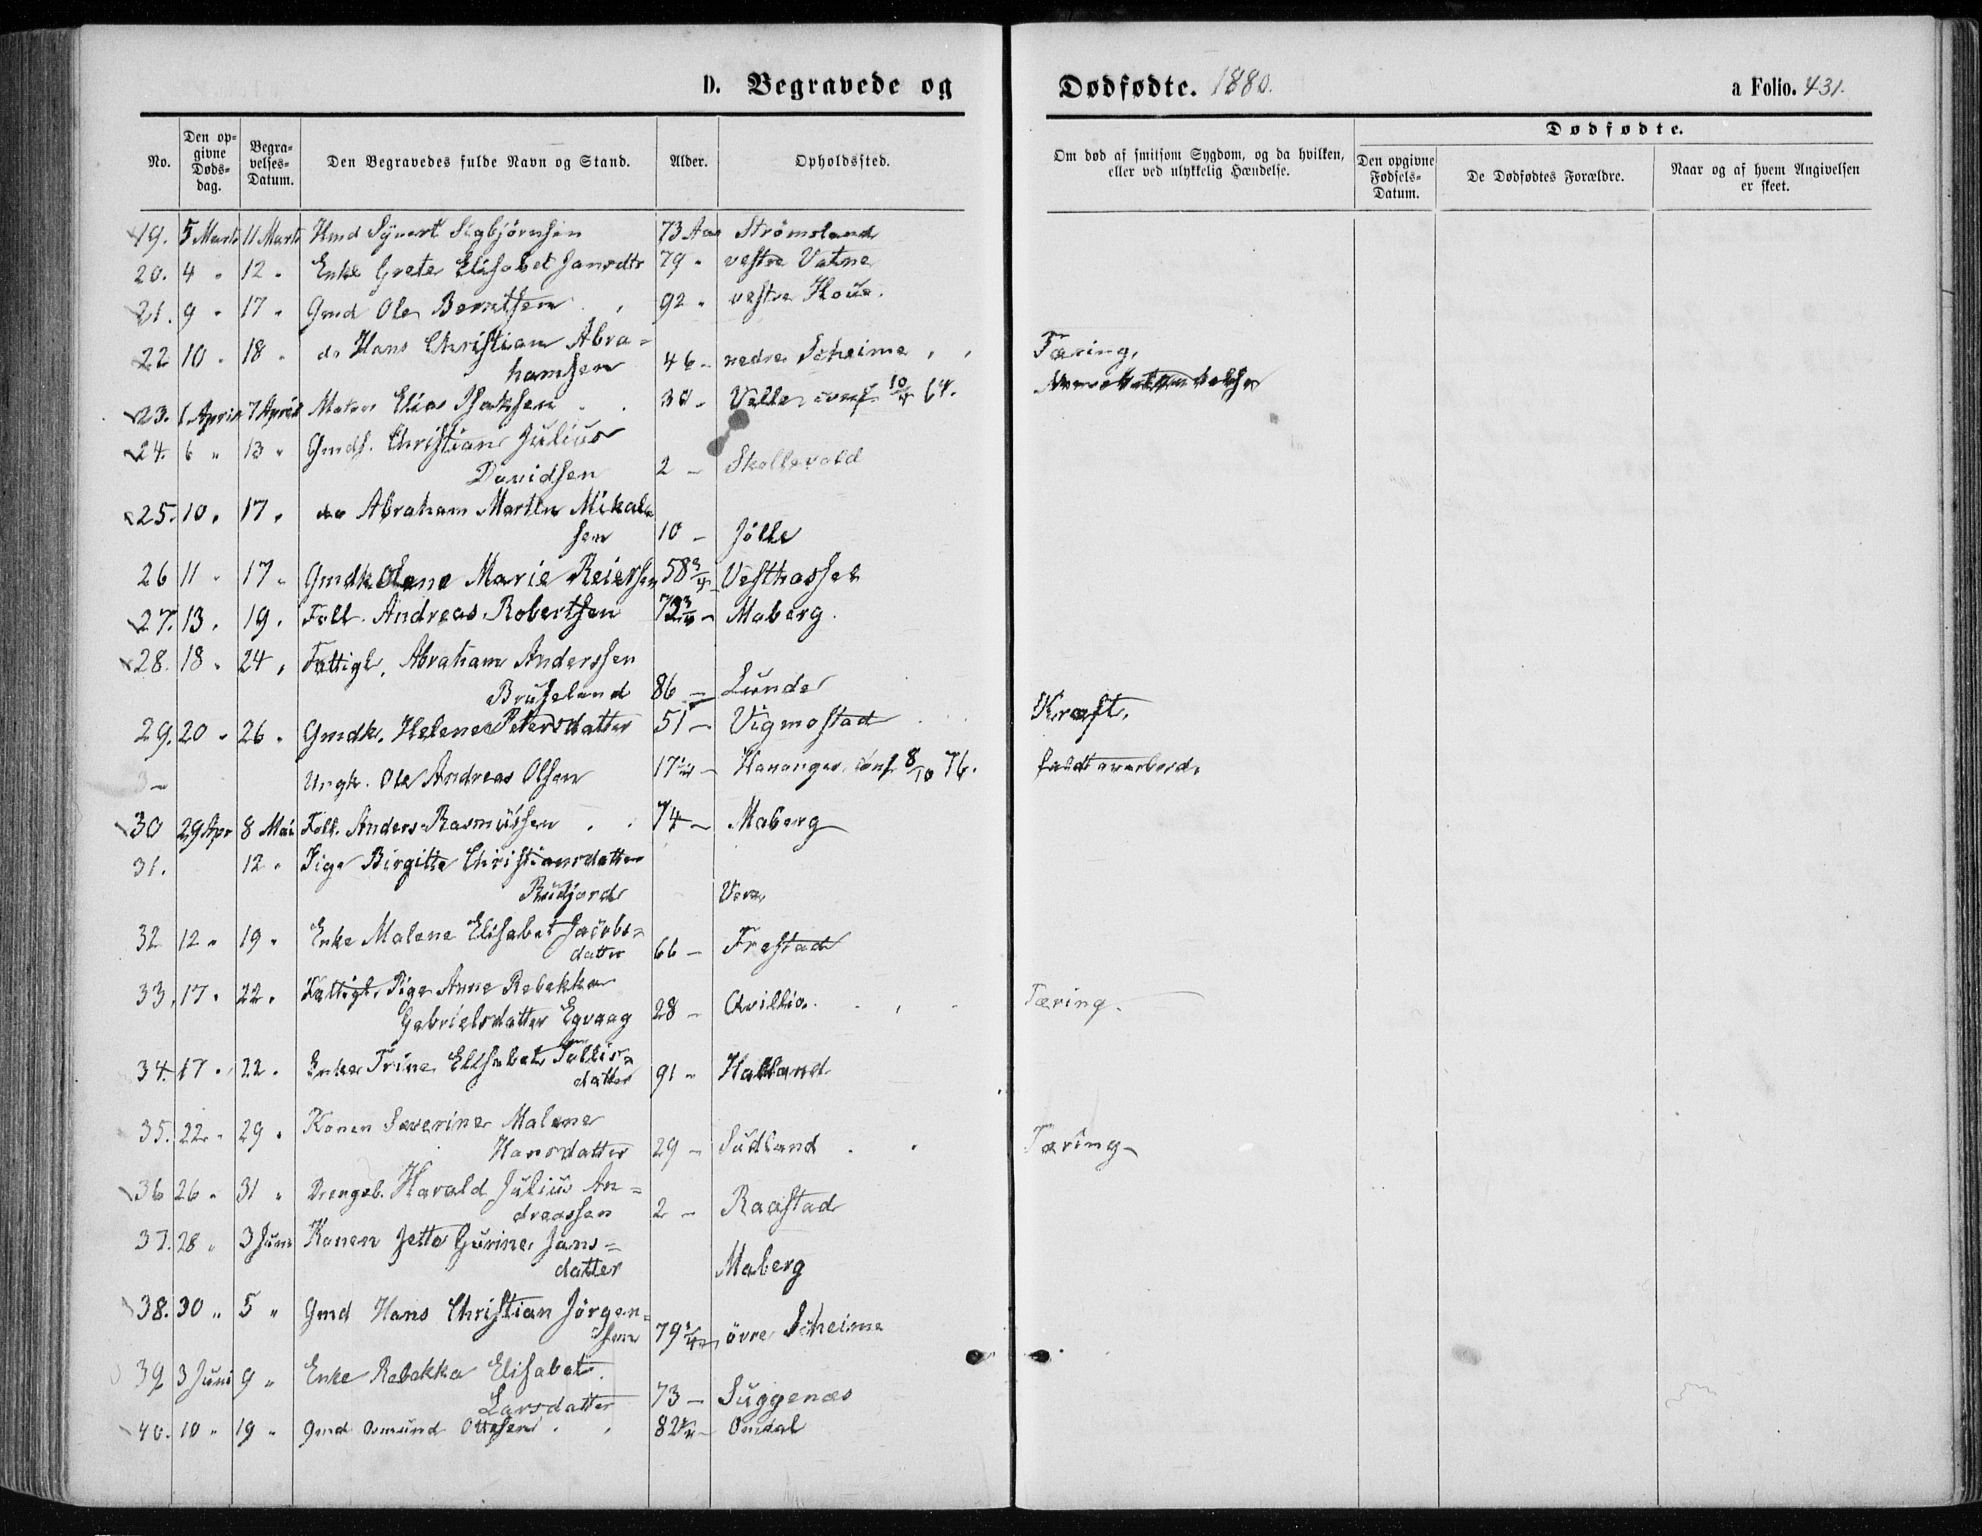 D. Begravede og Dødfødte. 1880. a Folio. 431.
No. Den opgivne Dødsdag. Begravelses-Datum. Den Begravedes fulde Navn og Stand. Alder. Opholdssted. Om død af smitsom Sygdom, og da hvilken, eller ved ulykkelig Hændelse. Dødfødte. Den opgivne Fødsels-Datum. De Dødfødtes Forældre. Naar og af hvem Angivelsen er skeet.
19. 5 Marts 11 Marts Kmd Syvert Sigbjørnsen 73 Aar Strømsland
20. 4 " 12 " Enke Grete Elisabet Jansdtr 79 " vestre Vatne
21. 9 " 17 " Gmd Ole Berntsen 92 " vestre Houe.
22 10 " 18 " do Hans Christian Abra-
hamsen 46 - nedre Scheime Tæring.
23. 1 April 7 April Matros Elias Isaksen 30 - Velle conf. 10/4 64.
24. 6 " 13 " Gmds. Christian Julius
Davidsen 2 - Skollevold
25. 10 " 17 " do Abraham Martin Mikal-
sen 10 - Jölle
26 11 " 17 " Gmdk Olene Marie Reiersen 58 3/4 - Vesthassel
27. 13 " 19 " Foll. Andreas Robertsen 73 3/4 - Maberg.
28. 18 " 24 " Fattigl. Abraham Anderssen
Bruseland 86 - Lunde
29. 20 " 26 " Gmdk. Helene Petersdatter 51 - Vigmostad Kræft.
- Ungk. Ole Andreas Olsen 17 1/4 - Hananger, conf 8/10 76. faldt overbord.
30 29 Apr 8 Mai Foll. Anders Rasmussen 74 - Maberg
31. 12 " Pige Birgitte Christiansdatter
Rudjord Vere
32 12 " 19 " Enke Malene Elisabet Jacobs-
datter 66 - Frestad
33. 17 " 22 " Fattigl. Pige Anne Rebekka
Gabrielsdatter Egvaag 28 - Qvillio. Tæring.
34. 17 " 22 " Enke Trine Elisabet Tollis-
datter 91 - Halland
35. 22 " 29 " Konen Severine Malene
Hansdatter 29 - Sudland Tæring
36 26 " 31 " Drengeb. Harald Julius An-
dreassen 2 - Raastad
37. 28 " 3 Juni Konen Jette Gurine Jans-
datter Maberg
38. 30 " 5 " Gmd Hans Christian Jörgen-
sen 79 1/4 övre Scheime
39 3 Juni 9 " Enke Rebekka Elisabet
Larsdatter 73 - Suggenæs
40. 10 " 19 " Gmd Osmund Ottesen 82 1/4 - Omdal